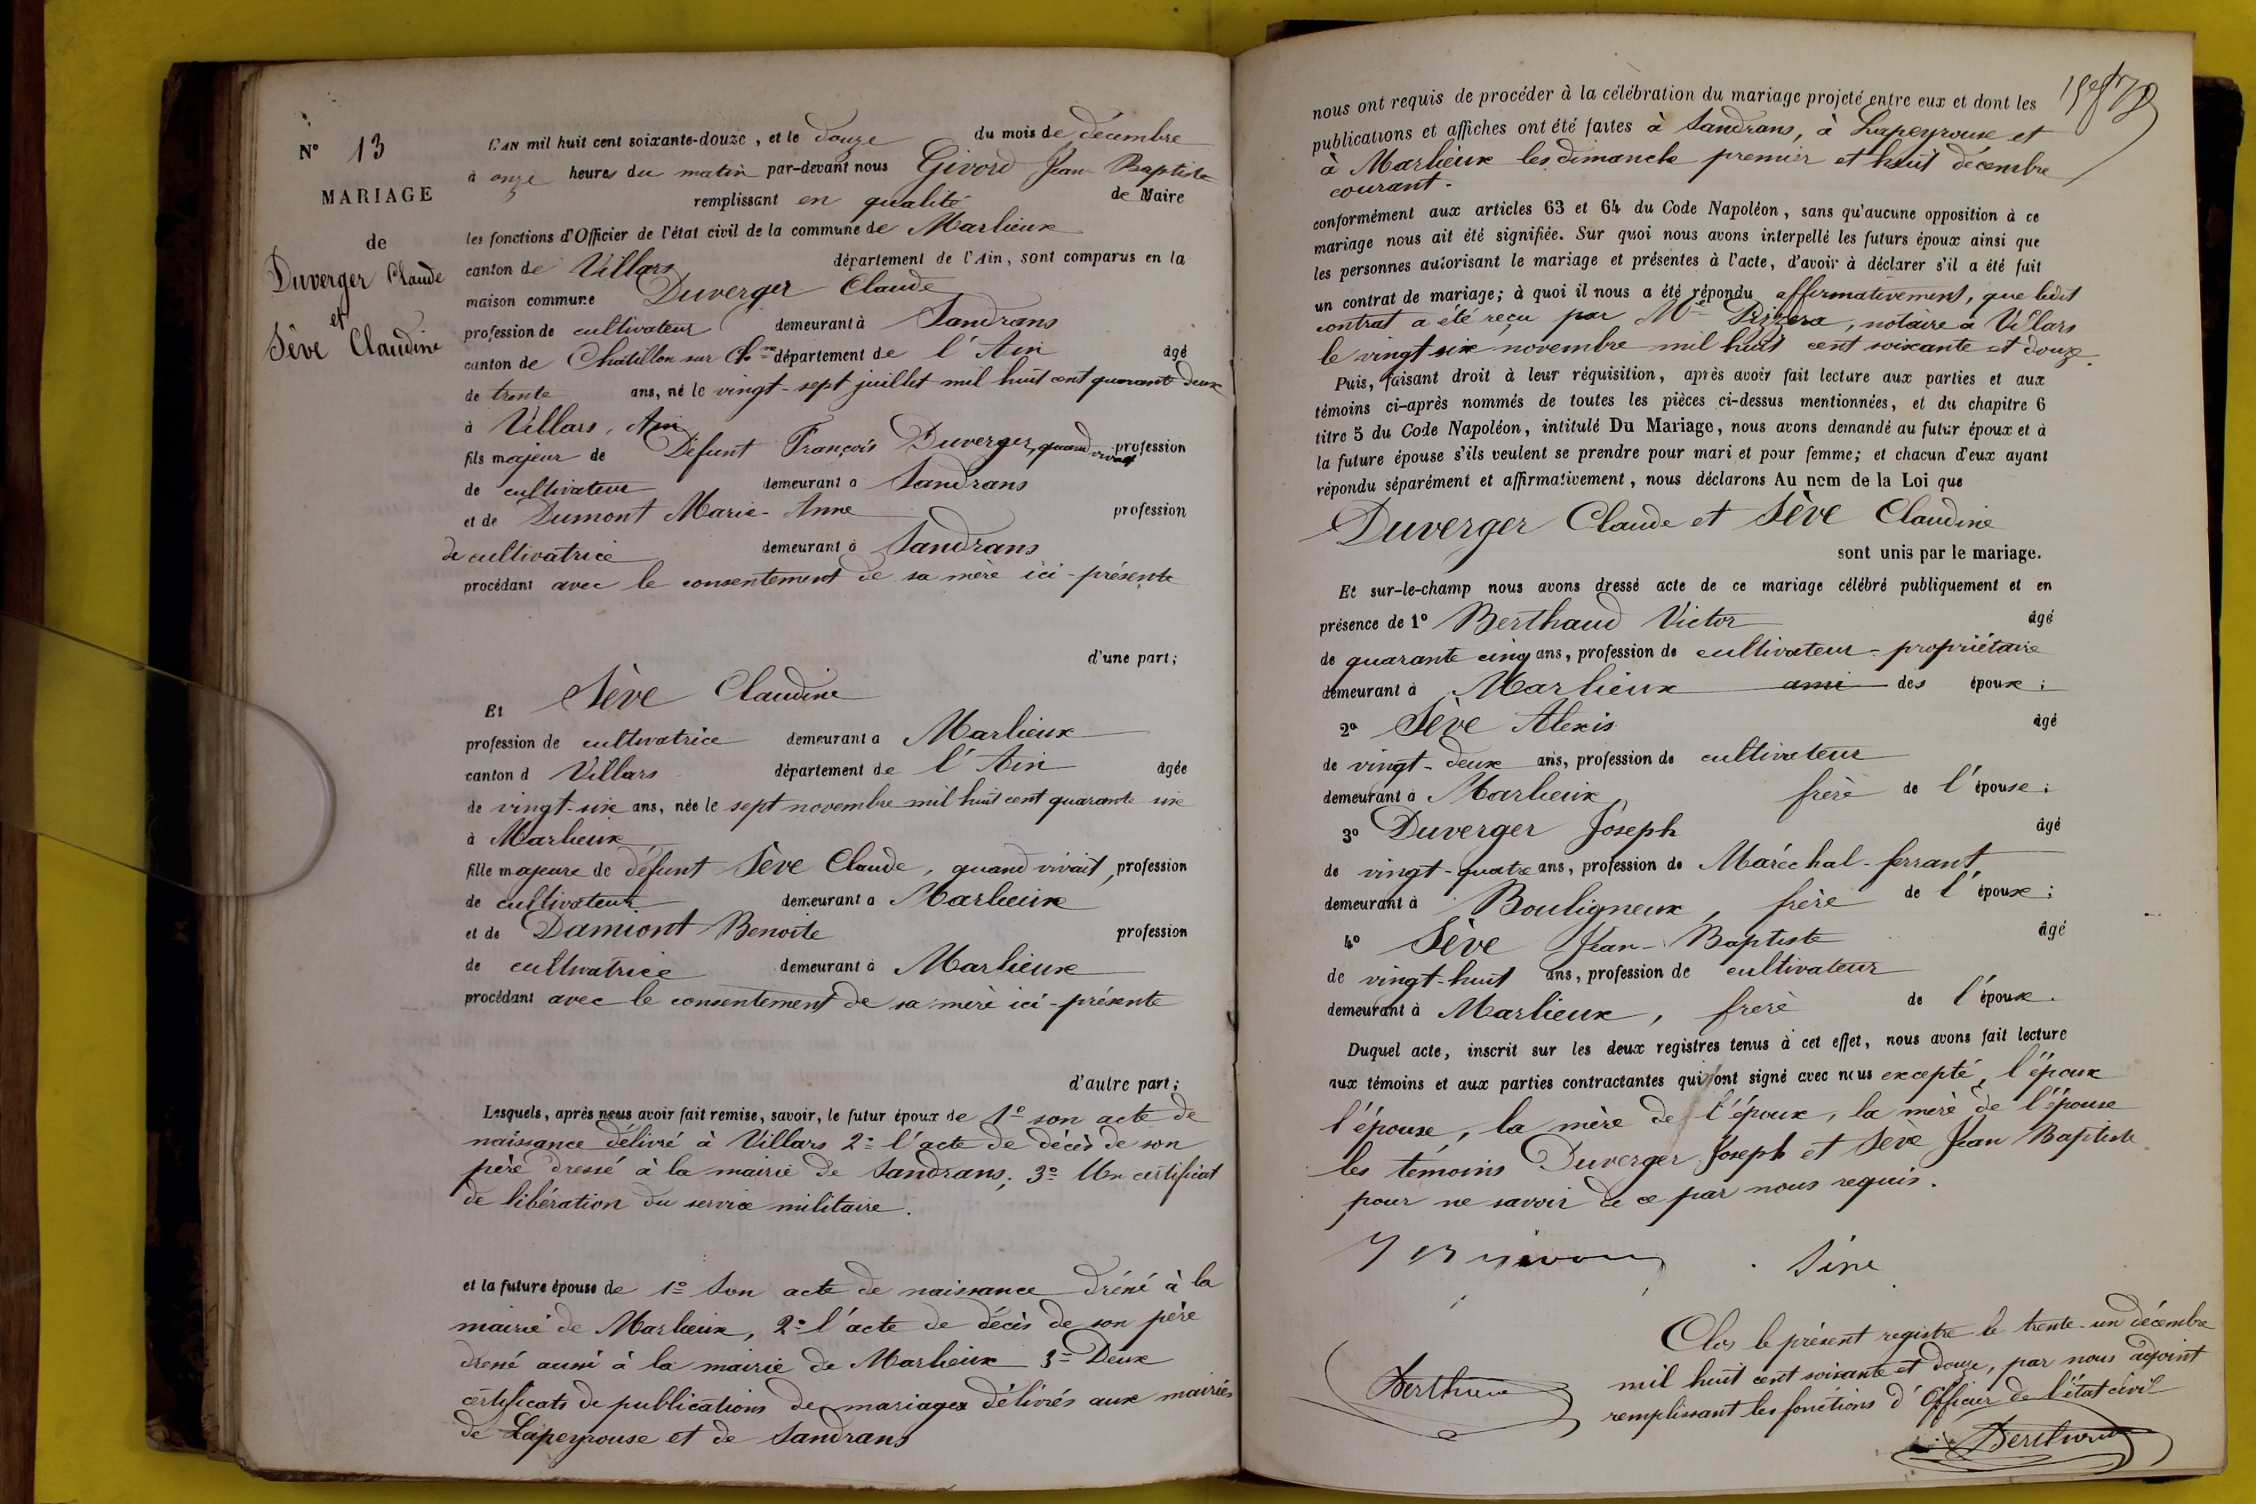 N° 13
MARIAGE
de
Duverger Claude
et
Sève Claudine
L'AN mil huit cent soixante-douze, et le douze du mois de décembre
à onze heures du matin par-devant nous Givord Jean Baptiste
remplissant en qualité de Maire
les fonctions d'Officier de l'état civil de la commune de Marlieux
canton de Villars département de l'Ain, sont comparus en la
maison commune Duverger Claude
profession de cultivateur demeurant à Sandrans
canton de Chatillon sur Ch.ne département de l'Ain âgé
de trente ans, né le vingt-sept juillet mil huit cent quarante deux
à Villars, Ain
fils majeur de Défunt François Duverger, quand vivait profession
de cultivateur demeurant à Sandrans
et de Dumont Marie-Anne profession
de cultivatrice demeurant à Sandrans
procédant avec le consentement de sa mère ici-présente
d'une part;
Et Sève Claudine
profession de cultivatrice demeurant à Marlieux
canton d Villars département de l'Ain âgée
de vingt-six ans, née le sept novembre mil huit cent quarante six
à Marlieux
fille majeure de défunt Sève Claude, quand vivait, profession
de cultivateur demeurant à Marlieux
et de Damiont Benoite profession
de cultivatrice demeurant à Marlieux
procédant avec le consentement de sa mère ici-présente
d'autre part;
Lesquels, après nous avoir fait remise, savoir, le futur époux de 1° son acte de
naissance délivré à Villars 2° l'acte de décès de son
père dressé à la mairie de Sandrans; 3° Un certificat
de libération du service militaire.
et la future épouse de 1° Son acte de naissance dréné à la
mairie de Marlieux, 2° l'acte de décès de son père
drené aussi à la mairie de Marlieux 3° Deux
certificats de publications de mariages délivrés aux mairies
de Lapeyrouse et de Sandrans
nous ont requis de procéder à la célébration du mariage projeté entre eux et dont les
publications et affiches ont été faites à Sandrans, à Lapeyrouse et
à Marlieux les dimanche premier et huit décembre
courant.
conformément aux articles 63 et 64 du Code Napoléon, sans qu'aucune opposition à ce
mariage nous ait été signifiée. Sur quoi nous avons interpellé les futurs époux ainsi que
les personnes autorisant le mariage et présentes à l'acte, d'avoir à déclarer s'il a été fait
un contrat de mariage; à quoi il nous a été répondu affirmativement, que ledit
contrat a été reçu par Me notaire à Villars
le vingt six novembre mil huit cent soixante et douze.
Puis, faisant droit à leur réquisition, après avoir fait lecture aux parties et aux
témoins ci-après nommés de toutes les pièces ci-dessus mentionnées, et du chapitre 6
titre 5 du Code Napoléon, intitulé Du Mariage, nous avons demandé au futur époux et à
la future épouse s'ils veulent se prendre pour mari et pour femme; et chacun d'eux ayant
répondu séparément et affirmativement, nous déclarons Au nom de la Loi que
Duverger Claude et Sève Claudine
sont unis par le mariage.
Et sur-le-champ nous avons dressé acte de ce mariage célébré publiquement et en
présence de 1° Berthaud Victor âgé
de quarante cinq ans, profession de cultivateur-propriétaire
demeurant à Marlieux ami des époux;
2° Sève Alexis âgé
de vingt-deux ans, profession de cultivateur
demeurant à Marlieux, frère de l'épouse;
3° Duverger Joseph âgé
de vingt-quatre ans, profession de Maréchal-ferrant
demeurant à Bouligneux, frère de l'époux;
4° Sève Jean-Baptiste âgé
de vingt-huit ans, profession de cultivateur
demeurant à Marlieux, frère de l'époux.
Duquel acte, inscrit sur les deux registres tenus à cet effet, nous avons fait lecture
aux témoins et aux parties contractantes qui ont signé avec nous excepté, l'époux
l'épouse, la mère de l'époux, la mère de l'épouse
les témoins Duverger Joseph et Sève Jean Baptiste
pour ne savoir de ce par nous requis.
Clos le présent registre le trente-un décembre
mil huit cent soixante et douze, par nous adjoint
remplissant les fonctions d'Officier de l'état civil